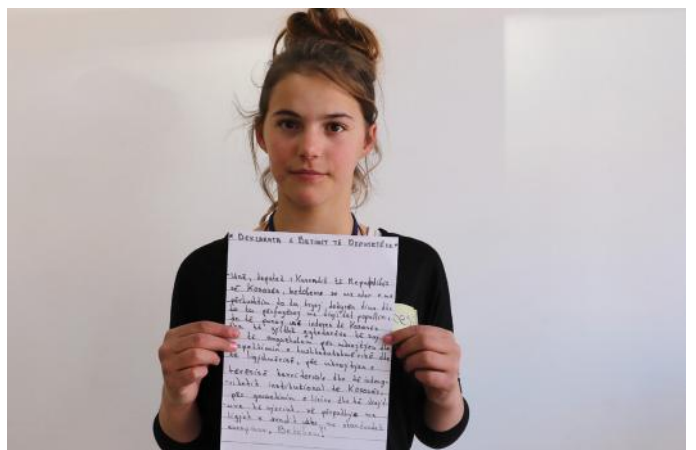 "DEKLARATA E BETIMIT TË DEPUTETËVE"
Unë, deputet i Kuvendit të Republikës
së Kosovës, betohem se me nder e me
përkushtim do ta kryej detyrën dhe do
ta përfaqësoj me dinjitet popullin,
do të punoj në interes të Kosovës
dhe të gjithë qytetarëve të saj,
do të angazhohem për mbrojtjen dhe
respektimin e kushtetutshmërisë dhe
të ligjshmërisë, për mbrojtjen e
tërësisë territoriale dhe të integ-
ritetit institucional të Kosovës,
për garantimin e lirive dhe të drejt-
ave të njeriut, në përputhje me
ligjet e vendit dhe me standardet
evropiane. Betohem!